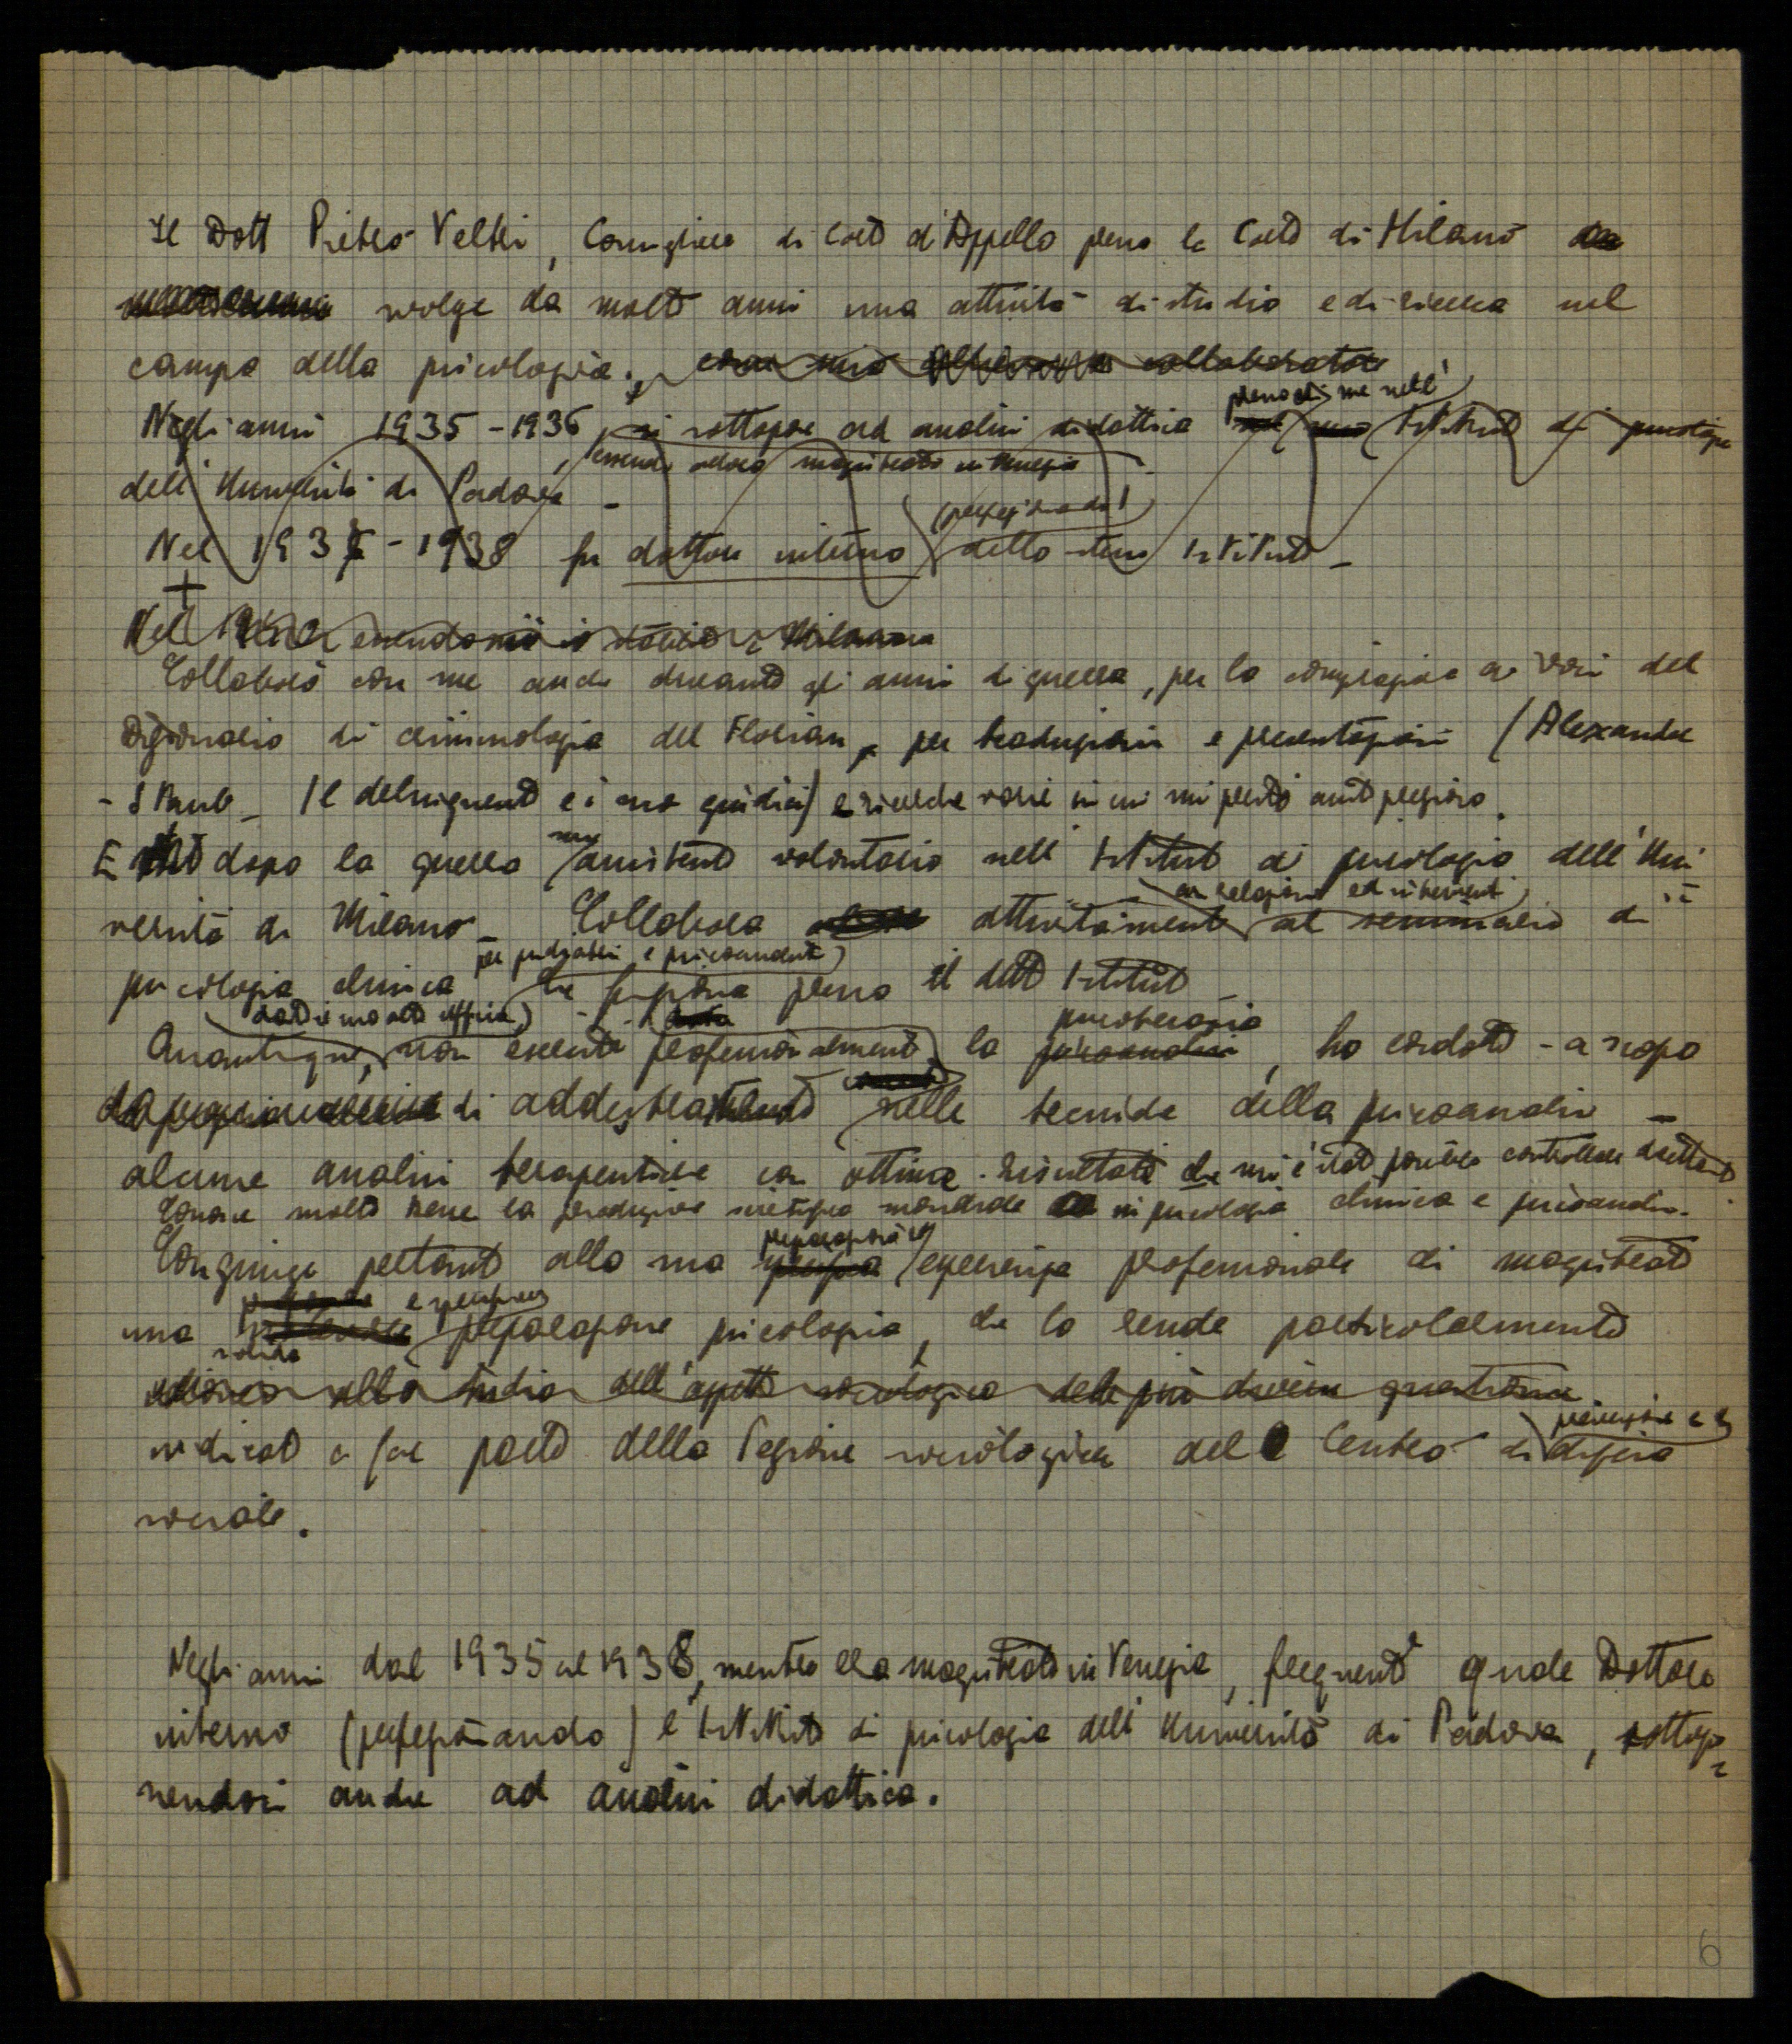 Il Dott Pietro Veltri, Consigliere di Corte d'Appello presso la Corte di Milano
svolge da molto anni una attività di studio e di ricerca nel
campo della psicologia. come mio collaboratore
Negli anni 1935-1936, si sottopose ad analisi didattica presso di me nell' Istituto di psicologia
essendo allora magistrato in Venezia
dell'Università di Padova -
(perfezionando)
Nel 1937-1938 fu dottore interno dello stesso Istituto -
+
Nel essendomi io stabilito a Milano
Collaborò con me anche durante gli anni di guerra, per la compilazione di voci del
Dizionario di criminologia del Florian, per traduzioni e presentazioni (Alexander
- Staub - Il delinquente e i suoi giudici) e ricerche varie in cui mi prestò aiuto prezioso.
mio
È dopo la guerra assistente volontario nell'Istituto di psicologia dell'Uni
con relazioni ed interventi
versità di Milano - Collabora attivamente al seminario di
per psichiatri e psicoanalisti
psicologia clinica che funziona presso il detto Istituto
dato il suo alto ufficio psicoterapia
Quantunque, non eserciti professionalmente la psicoanalisi, ha condotto - a scopo
di addestramento nelle tecniche della psicoanalisi -
alcune analisi terapeutiche con ottimi risultati che mi è stato possibile controllare direttamente.
Conosce molto bene la produzione scientifica mondiale in psicologia clinica e psicoanalisi.
preparazione ed
Congiunge pertanto alla sua esperienza professionale di magistrato
e specifica
una preparazione psicologica, che lo rende particolarmente
solida
allo studio dell'aspetto sociologico delle più diverse questioni
prevenzione e di
indicato a far parte della Sezione sociologica del Centro di difesa
sociale.
Negli anni dal 1935 al 1938, mentre era magistrato in Venezia, frequentò quale Dottore
interno (perfezionando) l'Istituto di psicologia dell'Università di Padova, sottopo=
nendosi anche ad analisi didattica.
6